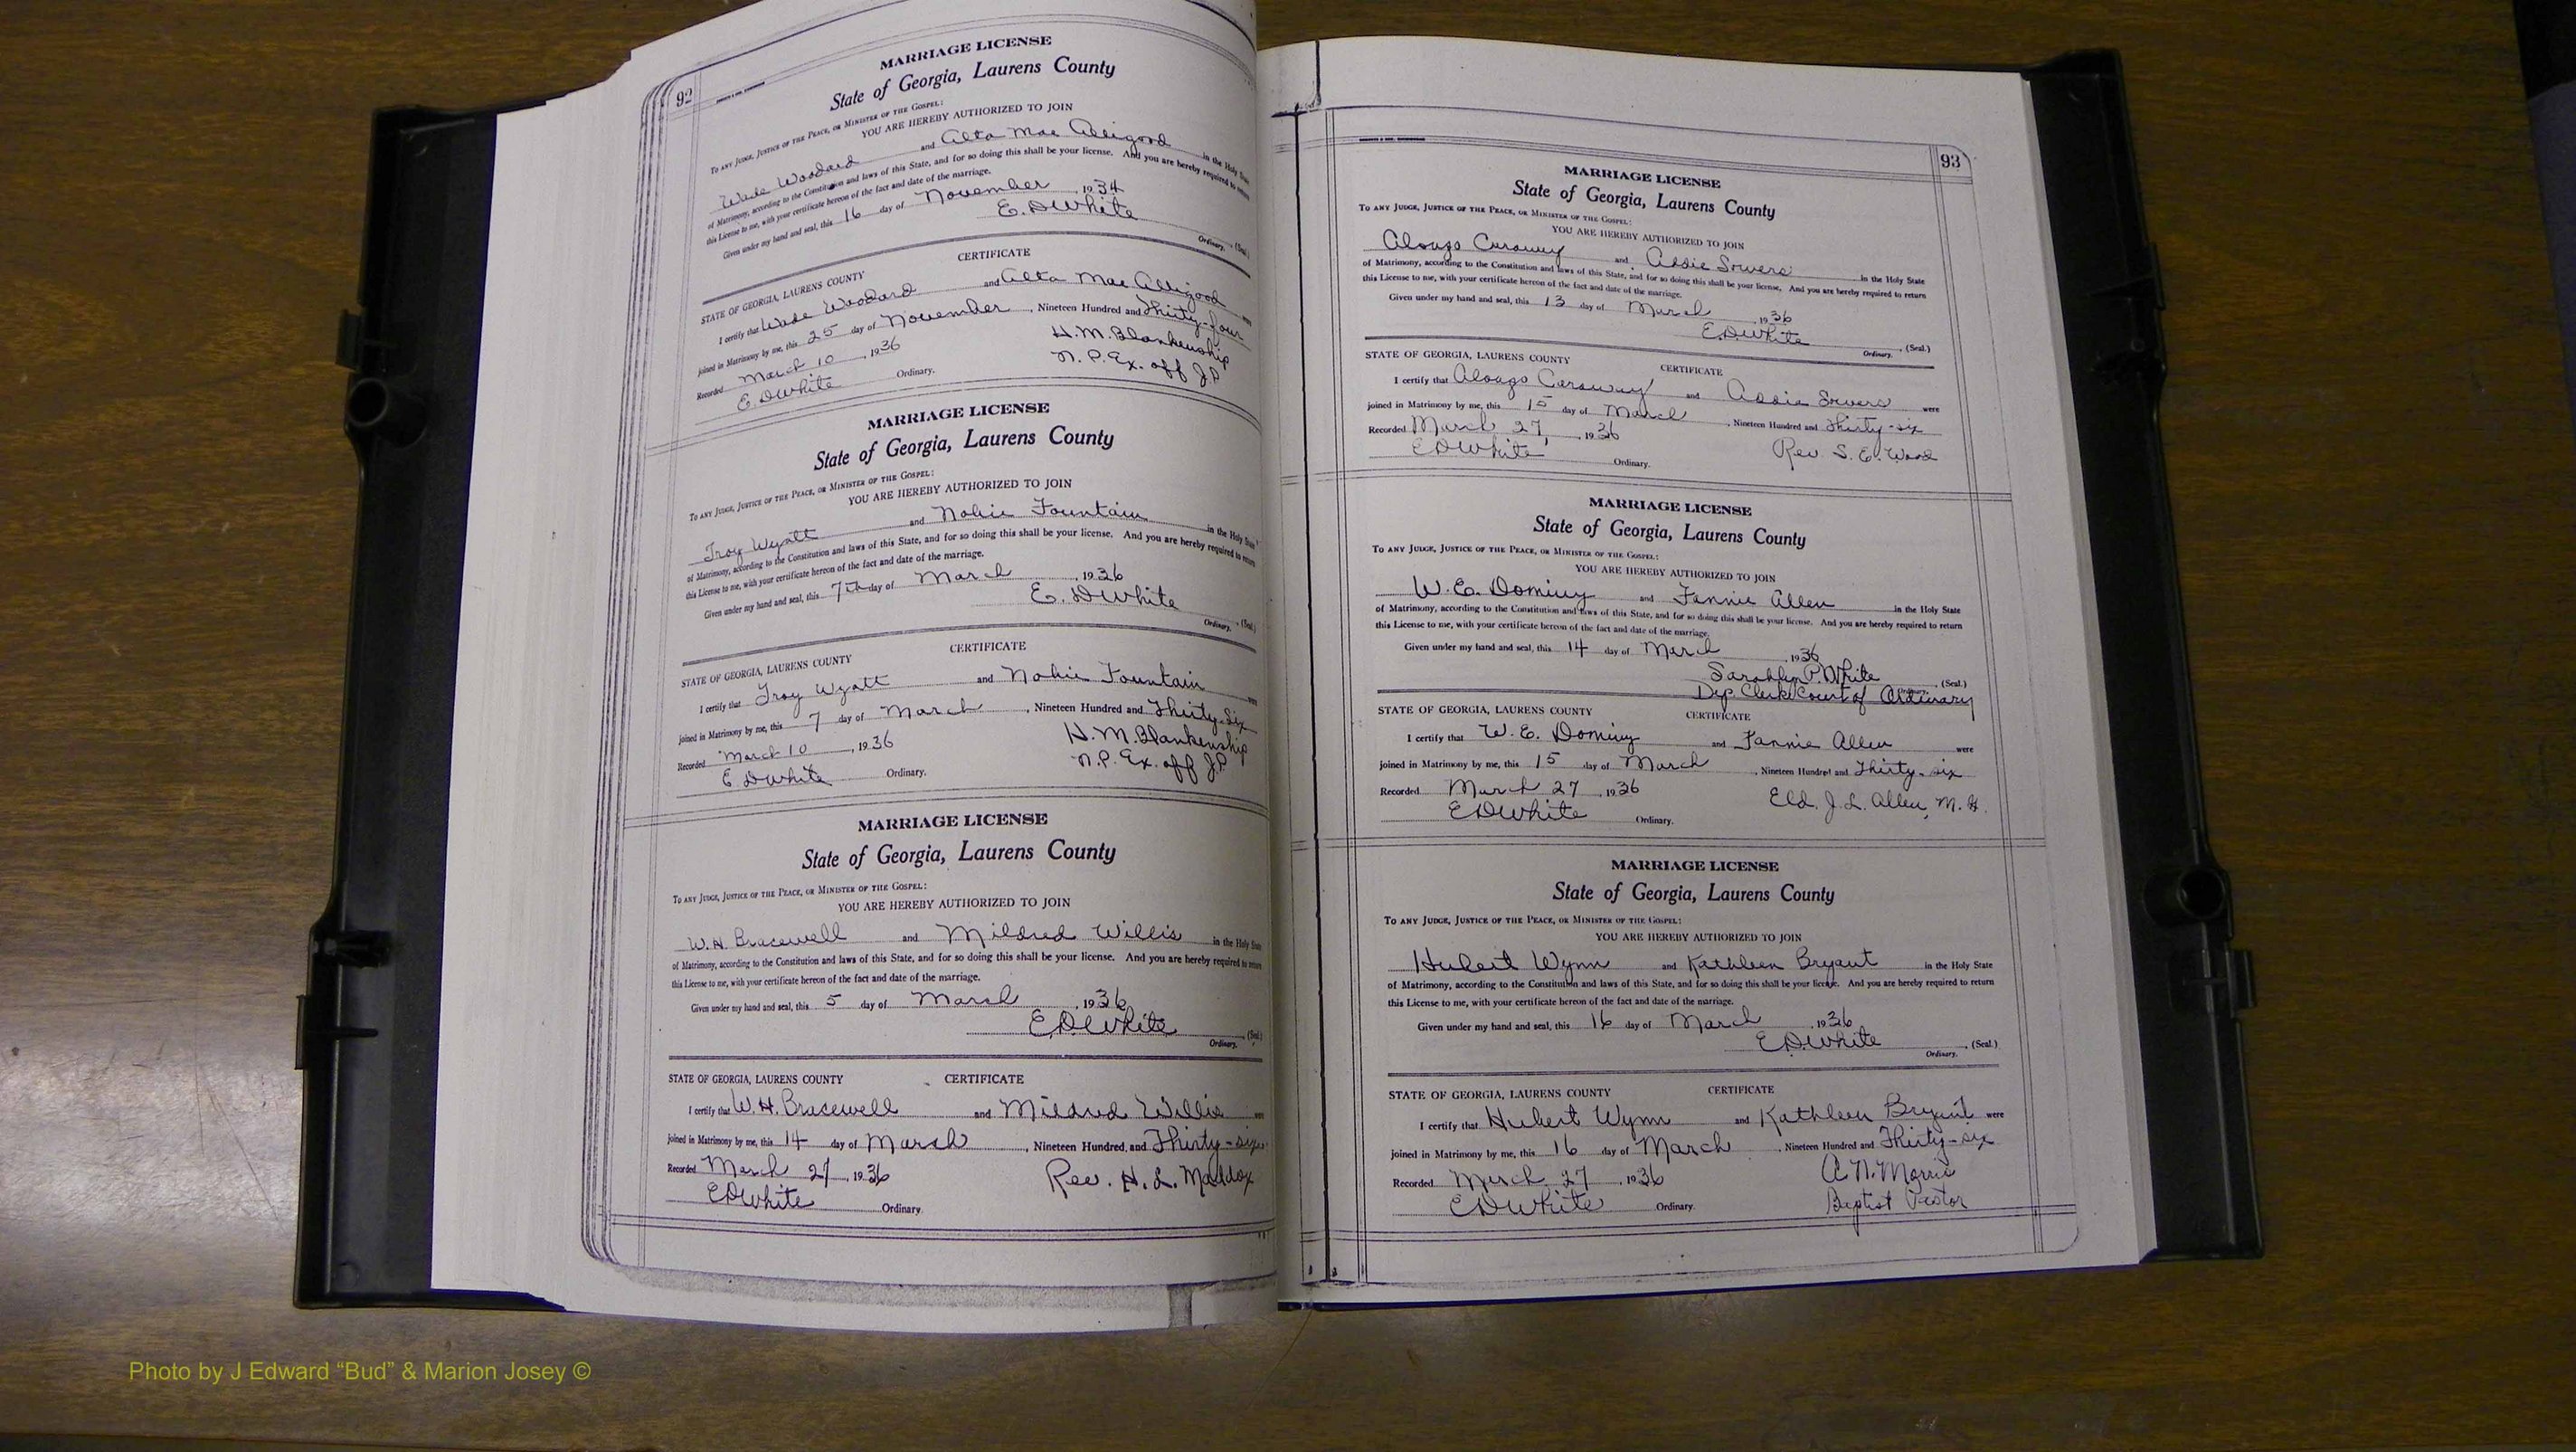 92
MARRIAGE LICENSE
State of Georgia, Laurens County
To any Judge, Justice of the Peace, or Minister of the Gospel:
YOU ARE HEREBY AUTHORIZED TO JOIN
Wade Woodard and Alta Mae Alligood in the Holy State
of Matrimony, according to the Constitution and laws of this State, and for so doing this shall be your license. And you are hereby required to return
this License to me, with your certificate hereon of the fact and date of the marriage.
Given under my hand and seal, this 16 day of November, 1934
E. D White
Ordinary. (Seal.)
CERTIFICATE
STATE OF GEORGIA, LAURENS COUNTY
I certify that Wade Woodard and Alta Mae Alligood were
joined in Matrimony by me, this 25 day of November, Nineteen Hundred and Thirty-four
Recorded March 10, 1936 H. M. Blankenship
E. D White Ordinary. N. P. Ex. off J.P.
MARRIAGE LICENSE
State of Georgia, Laurens County
To any Judge, Justice of the Peace, or Minister of the Gospel:
YOU ARE HEREBY AUTHORIZED TO JOIN
Troy Wyatt and Fountain in the Holy State
of Matrimony, according to the Constitution and laws of this State, and for so doing this shall be your license. And you are hereby required to return
this License to me, with your certificate hereon of the fact and date of the marriage.
Given under my hand and seal, this 7th day of March, 1936
E. D White
Ordinary. (Seal.)
CERTIFICATE
STATE OF GEORGIA, LAURENS COUNTY
I certify that Troy Wyatt and Fountain were
joined in Matrimony by me, this 7 day of March, Nineteen Hundred and Thirty-Six
Recorded March 10, 1936 H. M. Blankenship
E. D White Ordinary. N. P. Ex. off J.P.
MARRIAGE LICENSE
State of Georgia, Laurens County
To any Judge, Justice of the Peace, or Minister of the Gospel:
YOU ARE HEREBY AUTHORIZED TO JOIN
W. H. Bracewell and Mildred Willis in the Holy State
of Matrimony, according to the Constitution and laws of this State, and for so doing this shall be your license. And you are hereby required to return
this License to me, with your certificate hereon of the fact and date of the marriage.
Given under my hand and seal, this 5 day of March, 1936
E. D. White
Ordinary. (Seal.)
STATE OF GEORGIA, LAURENS COUNTY CERTIFICATE
I certify that W. H. Bracewell and Mildred Willis were
joined in Matrimony by me, this 14 day of March, Nineteen Hundred and Thirty-six
Recorded March 27, 1936 Rev. H. L. Maddox
E D White Ordinary.
93
MARRIAGE LICENSE
State of Georgia, Laurens County
To any Judge, Justice of the Peace, or Minister of the Gospel:
YOU ARE HEREBY AUTHORIZED TO JOIN
Alonzo Caraway and Addie in the Holy State
of Matrimony, according to the Constitution and laws of this State, and for so doing this shall be your license. And you are hereby required to return
this License to me, with your certificate hereon of the fact and date of the marriage.
Given under my hand and seal, this 13 day of March, 1936
E. D. White (Seal.)
Ordinary.
STATE OF GEORGIA, LAURENS COUNTY CERTIFICATE
I certify that Alonzo Caraway and Addie were
joined in Matrimony by me, this 15 day of March, Nineteen Hundred and Thirty-six
Recorded March 27, 1936 Rev. S. E. Wood
E D White Ordinary.
MARRIAGE LICENSE
State of Georgia, Laurens County
To any Judge, Justice of the Peace, or Minister of the Gospel:
YOU ARE HEREBY AUTHORIZED TO JOIN
W. E. Dominy and Fannie Allen in the Holy State
of Matrimony, according to the Constitution and laws of this State, and for so doing this shall be your license. And you are hereby required to return
this License to me, with your certificate hereon of the fact and date of the marriage.
Given under my hand and seal, this 14 day of March, 1936
P. White (Seal.)
Dep. Clerk Court of Ordinary
STATE OF GEORGIA, LAURENS COUNTY CERTIFICATE
I certify that W. E. Dominy and Fannie Allen were
joined in Matrimony by me, this 15 day of March, Nineteen Hundred and Thirty-six
Recorded March 27, 1936 Eld. J. L. Allen, M. G.
E D White Ordinary.
MARRIAGE LICENSE
State of Georgia, Laurens County
To any Judge, Justice of the Peace, or Minister of the Gospel:
YOU ARE HEREBY AUTHORIZED TO JOIN
Hubert Wynn and Kathleen Bryant in the Holy State
of Matrimony, according to the Constitution and laws of this State, and for so doing this shall be your license. And you are hereby required to return
this License to me, with your certificate hereon of the fact and date of the marriage.
Given under my hand and seal, this 16 day of March, 1936
E. D. White (Seal.)
Ordinary.
STATE OF GEORGIA, LAURENS COUNTY CERTIFICATE
I certify that Hubert Wynn and Kathleen Bryant were
joined in Matrimony by me, this 16 day of March, Nineteen Hundred and Thirty-six
Recorded March 27, 1936 A. N. Morris
E D White Ordinary. Baptist Pastor
Photo by J Edward “Bud” & Marion Josey ©